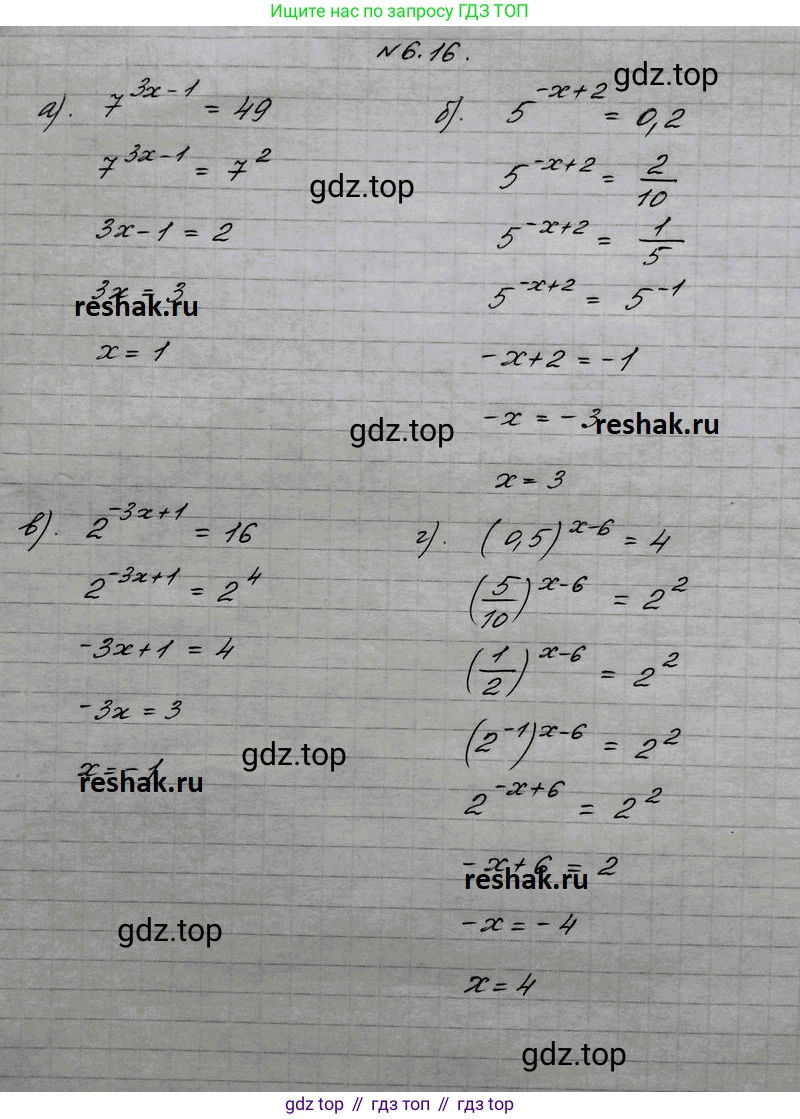 Ищите нас по запросу ГДЗ ТОП
№6.16.
gdz.top
а). 7^{3x-1} = 49
7^{3x-1} = 7^2
3x-1 = 2
3x = 3
x = 1
gdz.top
reshak.ru
б). 5^{-x+2} = 0,2
5^{-x+2} = \frac{2}{10}
5^{-x+2} = \frac{1}{5}
5^{-x+2} = 5^{-1}
-x+2 = -1
-x = -3
x = 3
gdz.top
reshak.ru
в). 2^{-3x+1} = 16
2^{-3x+1} = 2^4
-3x+1 = 4
-3x = 3
x = -1
gdz.top
reshak.ru
г). (0,5)^{x-6} = 4
(\frac{5}{10})^{x-6} = 2^2
(\frac{1}{2})^{x-6} = 2^2
(2^{-1})^{x-6} = 2^2
2^{-x+6} = 2^2
-x+6 = 2
-x = -4
x = 4
reshak.ru
gdz.top
gdz.top
gdz.top // гдз топ // гдз top